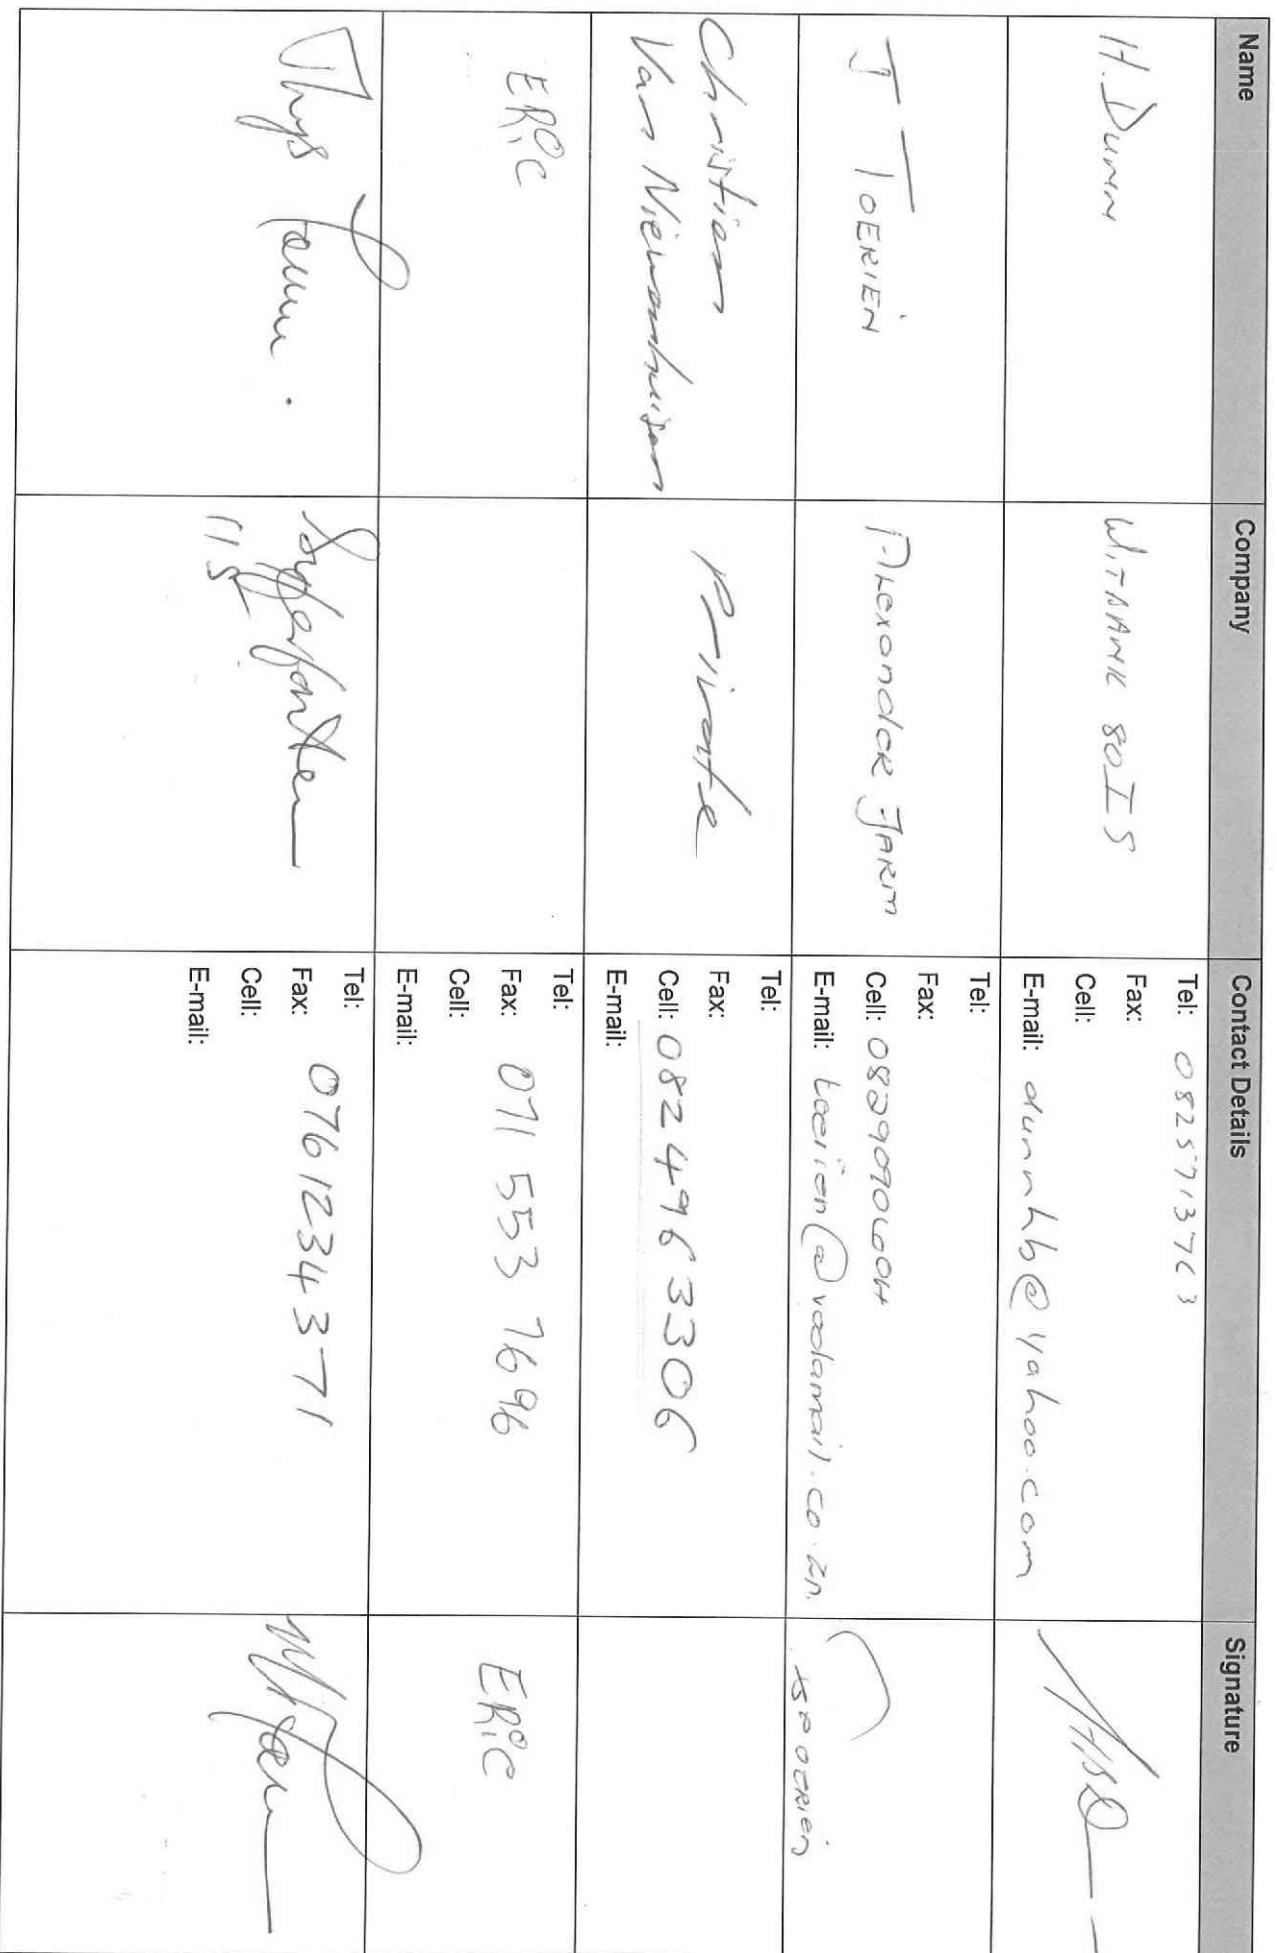 Name Company Contact Details Signature
H. Dunn WITBANK 80IS Tel: 0825713763
Fax:
Cell:
E-mail: dunnhb@yahoo.com
J TOERIEN Alexander Farm Tel:
Fax:
Cell: 0829090604
E-mail: toerien@vodamail.co.za.
Christiaan
Van Nieuwenhuizen
Private Tel:
Fax:
Cell: 082 496 3306
E-mail:
ERIC Tel:
Fax: 071 553 7696
Cell:
E-mail:
ERIC
Thys
115
Tel:
Fax: 0761234371
Cell:
E-mail: